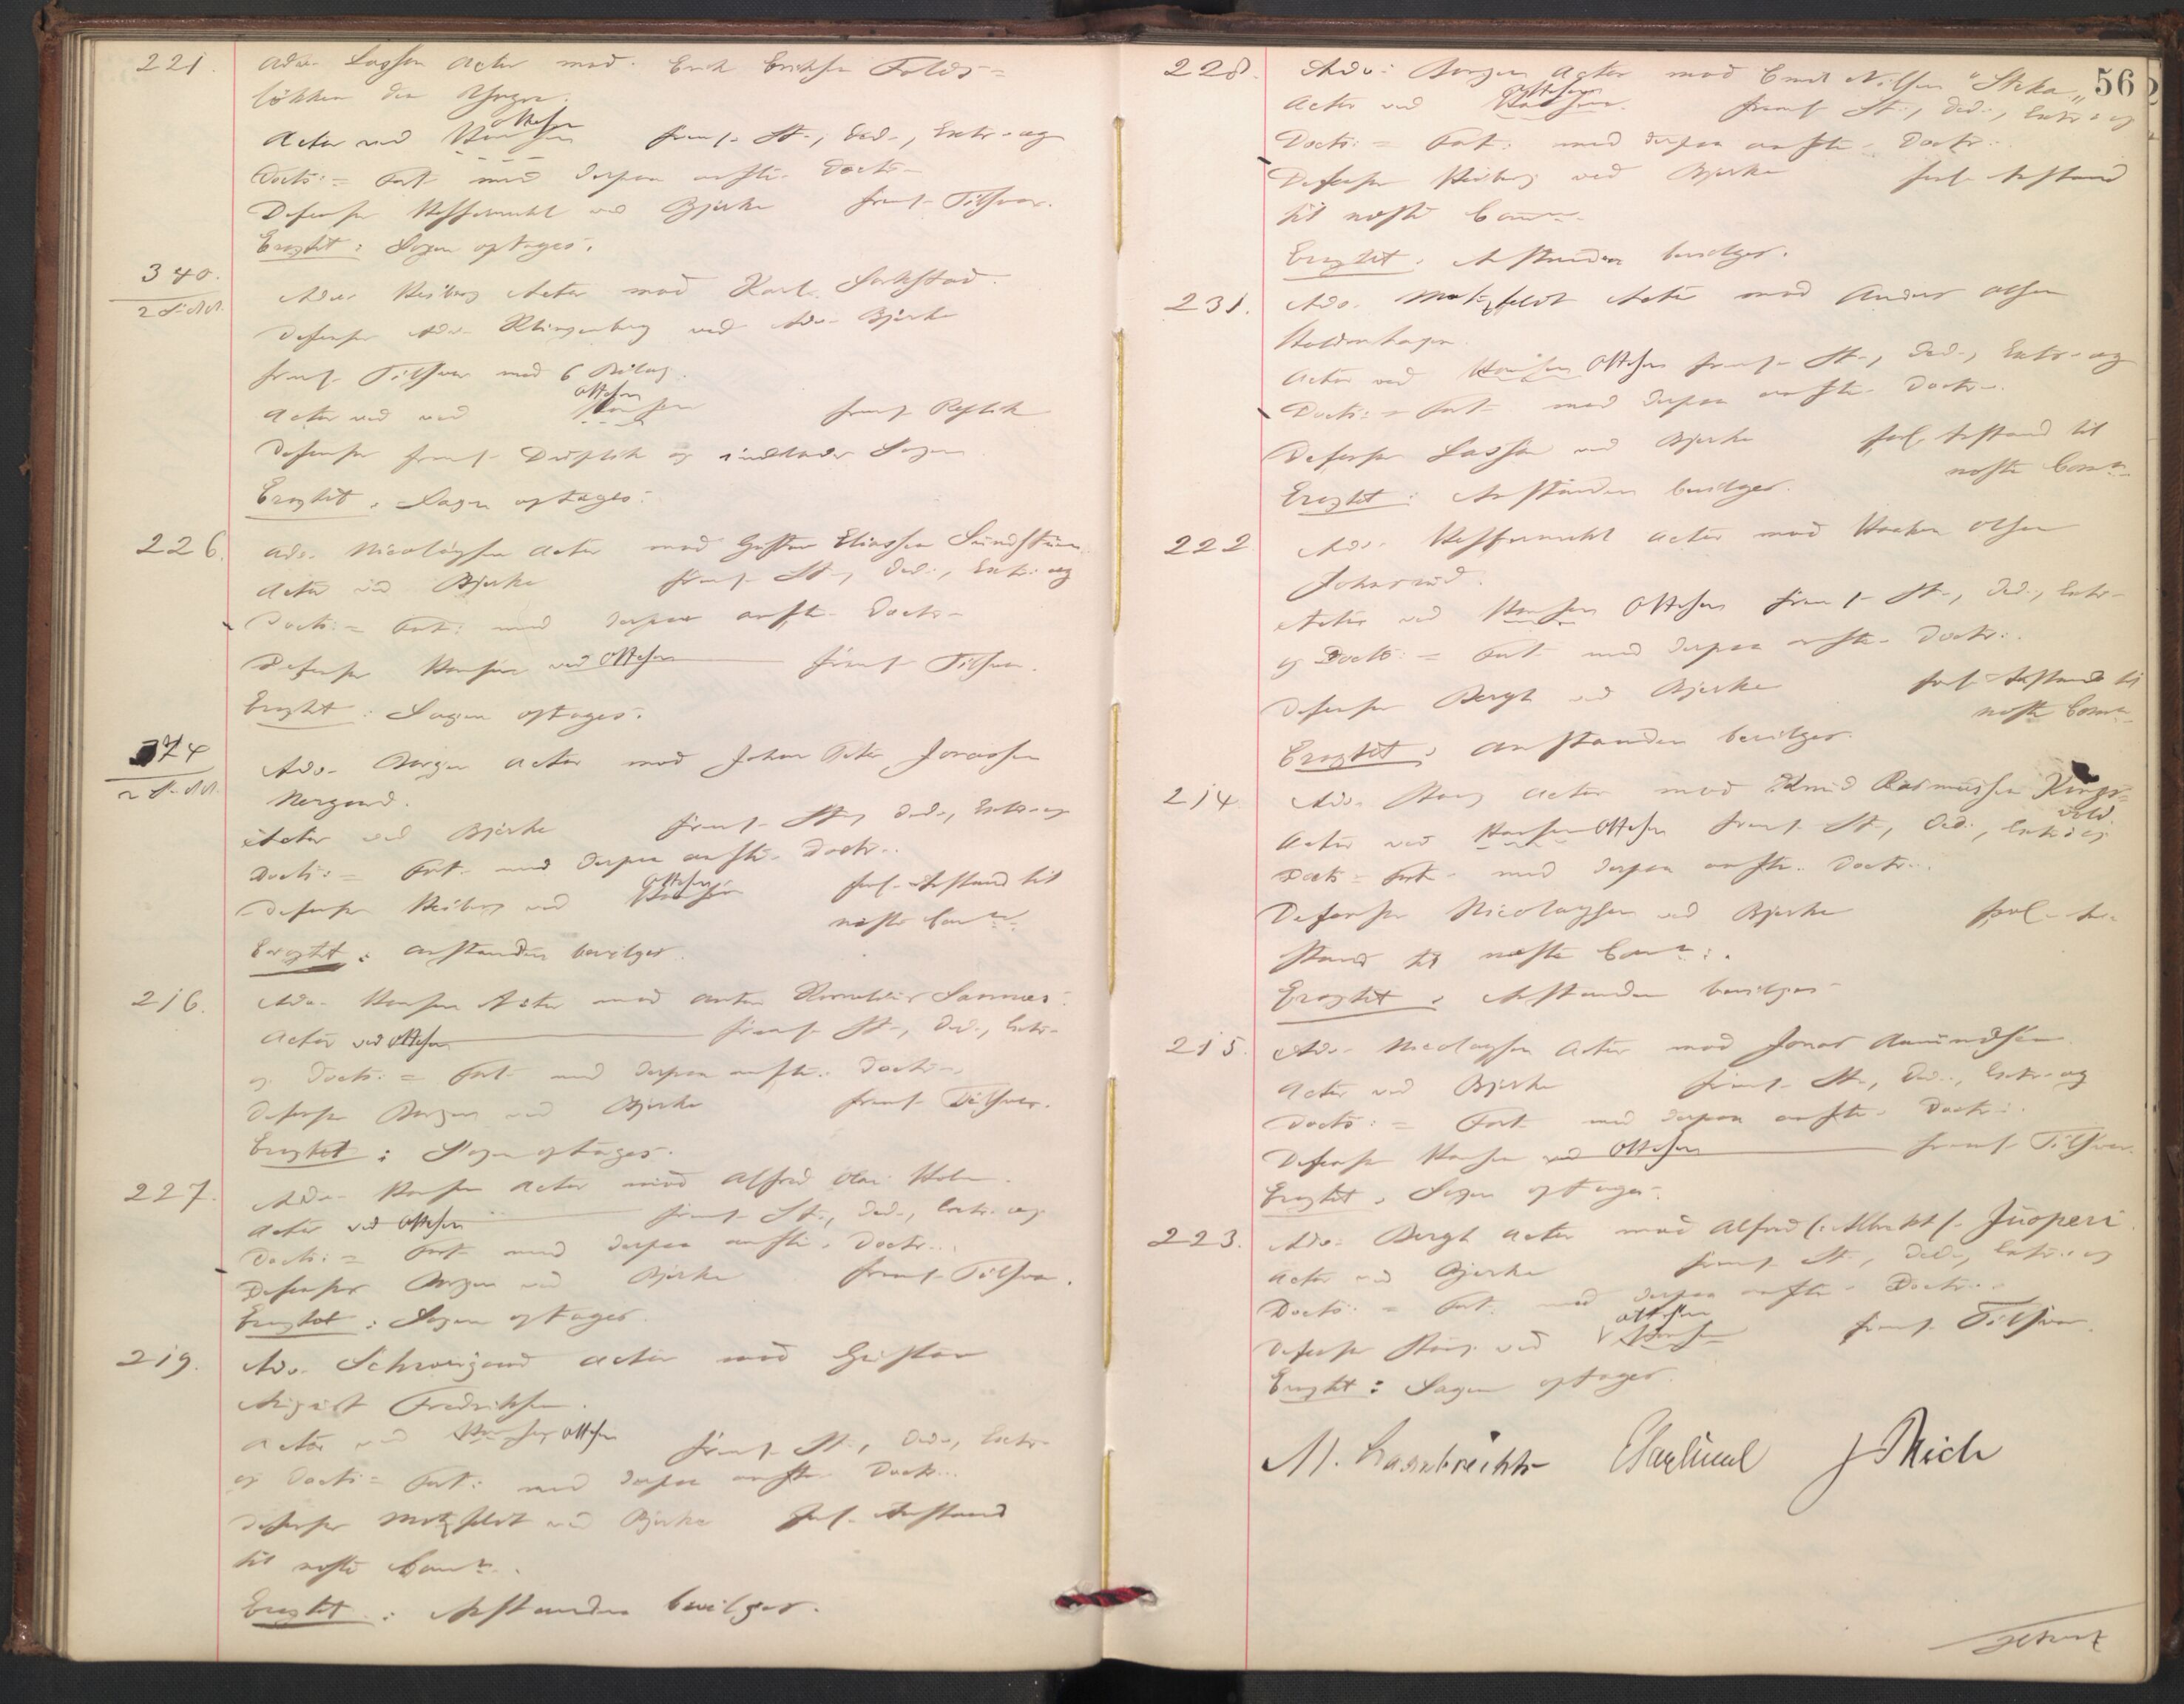 221. Adv. Lassen Actor mod. Erik Eriksen Folds=
løkken den Yngre.
Ottesen
Actor ved Hansen freml. St., Ded., Extr. og
Docts: = Prot. med derpaa anfte. Doctr.
Defensor ved Bjerke freml. Tilsvar.
Eragtet: Sagen optages.
340.
2 S. M.
Adv. Heiberg Actor mod Karl
Defensor Adv. Klingenberg ved Adv. Bjerke
freml. Tilsvar med 6 Bilag.
Ottesen
Actor ved Hansen freml. Replik
Defensor freml. Duplik og indlader Sagen
Eragtet: Sagen optages.
226. Adv. Nicolaysen Actor mod Gustav Eliassen Sundstrøm
Actor ved Bjerke freml. St., Ded., Extr. og
Docts: = Prot: med derpaa anfte. Doctr.
Defensor Hansen ved Ottesen freml. Tilsvar.
Eragtet: Sagen optages.
374
2 S. M.
Adv. Borgen Actor mod Johan Peter Jonassen
Nergaard.
Actor ved Bjerke freml. St., Ded., Extr. og
Docts: = Prot. med derpaa anfte. Doctr.
Ottesen
Defensor Heiberg ved Hansen forl. Anstand til
næste
Eragtet: Anstanden bevilges.
216. Adv. Hansen Actor mod Anton Sannæs.
Actor ved Ottesen freml. St., Ded., Extr.
og Docts. = Prot. med derpaa anfte. Doctr.
Defensor Borgen ved Bjerke freml. Tilsvar.
Eragtet: Sagen optages.
227. Adv. Hansen Actor mod Alfred Olai Holm.
Actor ved Ottesen freml. St., Ded., Extr. og
Docts: = Prot. med derpaa anfte. Doctr.
Defensor Borgen ved Bjerke freml. Tilsvar.
Eragtet: Sagen optages.
219. Adv. Schweigaard Actor mod Gustav
August Fredriksen.
Actor ved Hansen Ottesen freml. St., Ded., Extr.
og Docts: = Prot: med derpaa anfte. Doctr.
Defensor Motzfeldt ved Bjerke forl. Anstand
til næste
Eragtet: Anstanden bevilges.
56
228. Adv: Borgen Actor mod Emil Nilsen "Stika"
Ottesen
Actor ved Hansen freml. St., Ded., Extr. og
Docts: = Prot: med derpaa anfte. Doctr.
Defensor Heiberg ved Bjerke forl. Anstand
til næste
Eragtet: Anstanden bevilges.
231. Adv. Motzfeldt Actor mod Anders Olsen
Actor ved Hansen Ottesen freml. St., Ded., Extr. og
Docts: = Prot. med derpaa anfte. Doctr.
Defensor Lassen ved Bjerke forl. Anstand til
næste
Eragtet: Anstanden bevilges.
222. Adv. Actor mod Haaken Olsen
Johnsrud.
Actor ved Hansen Ottesen freml. St., Ded., Extr.
og Docts: = Prot. med derpaa anfte. Doctr.
Defensor Bergh ved Bjerke forl. Anstand til
næste
Eragtet: Anstanden bevilges.
214. Adv. Stang Actor mod Knud Rasmussen Kings=
vold.
Actor ved Hansen Ottesen freml. St., Ded., Extr. og
Docts = Prot. med derpaa anfte. Doctr.
Defensor Nicolaysen ved Bjerke forl. An=
stand til næste
Eragtet: Anstanden bevilges.
215. Adv. Nicolaysen Actor mod Jonas Amundsen
Actor ved Bjerke freml. St., Ded., Extr. og
Docts: = Prot. med derpaa anfte. Doctr.
Defensor Hansen ved Ottesen freml. Tilsvar.
Eragtet: Sagen optages.
223. Adv. Bergh Actor mod Alfred (: Albrekt (: Juoperi.
Actor ved Bjerke freml. St., Ded., Extr. og
Docts: = Prot. med derpaa anfte. Doctr.
Ottesen
Defensor Stang ved Hansen freml. Tilsvar.
Eragtet: Sagen optages.
M. Lambrechts